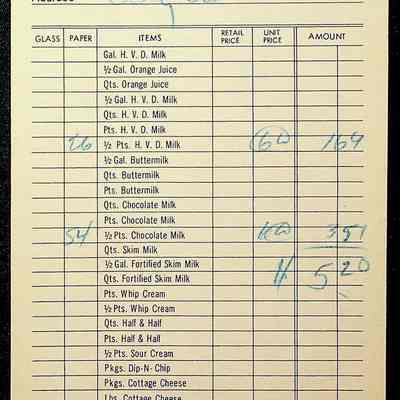 GLASS PAPER ITEMS RETAIL PRICE UNIT PRICE AMOUNT
Gal. H. V. D. Milk
½ Gal. Orange Juice
Qts. Orange Juice
½ Gal. H. V. D. Milk
Qts. H. V. D. Milk
Pts. H. V. D. Milk
26 ½ Pts. H. V. D. Milk 169
½ Gal. Buttermilk
Qts. Buttermilk
Pts. Buttermilk
Qts. Chocolate Milk
Pts. Chocolate Milk
54 ½ Pts. Chocolate Milk 351
Qts. Skim Milk
½ Gal. Fortified Skim Milk 520
Qts. Fortified Skim Milk
Pts. Whip Cream
½ Pts. Whip Cream
Qts. Half & Half
Pts. Half & Half
½ Pts. Sour Cream
Pkgs. Dip-N-Chip
Pkgs. Cottage Cheese
Lbs. Cottage Cheese